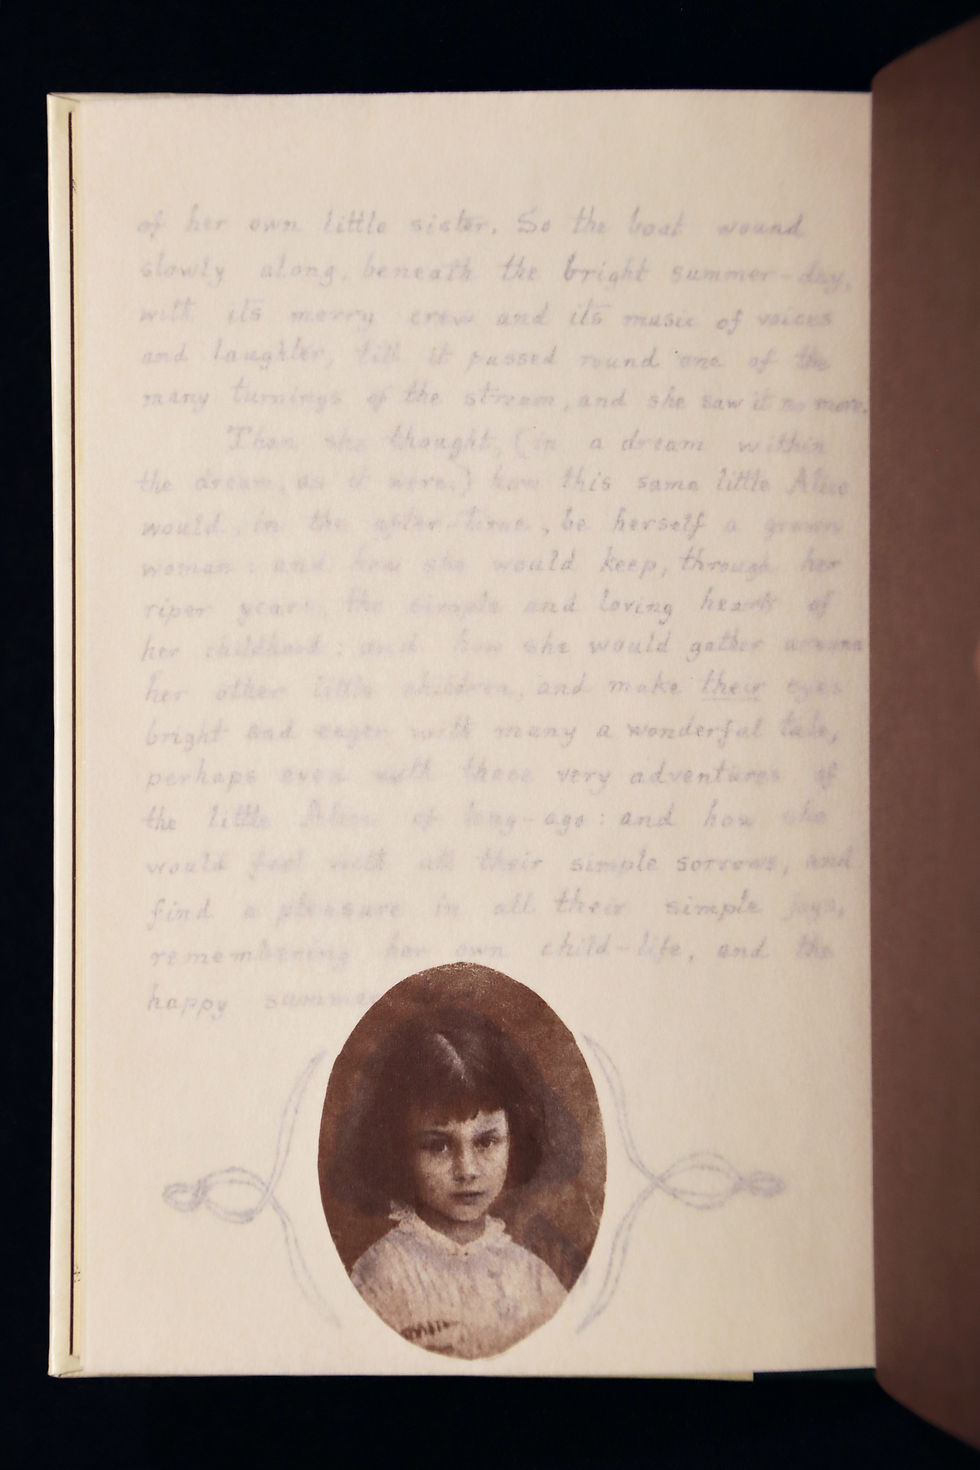 of her own little sister. So the boat wound
slowly along, beneath the bright summer-day,
with its merry crew and its music of voices
and laughter, till it passed round one of the
many turnings of the stream, and she saw it no more.
Then she thought, (in a dream within
the dream, as it were,) how this same little Alice
would, in the after-time, be herself a grown
woman: and how she would keep, through her
riper years, the simple and loving heart of
her childhood: and how she would gather around
her other little children, and make their eyes
bright and eager with many a wonderful tale,
perhaps even with these very adventures of
the little Alice of long-ago: and how she
would feel with all their simple sorrows, and
find a pleasure in all their simple joys,
remembering her own child-life, and the
happy summer